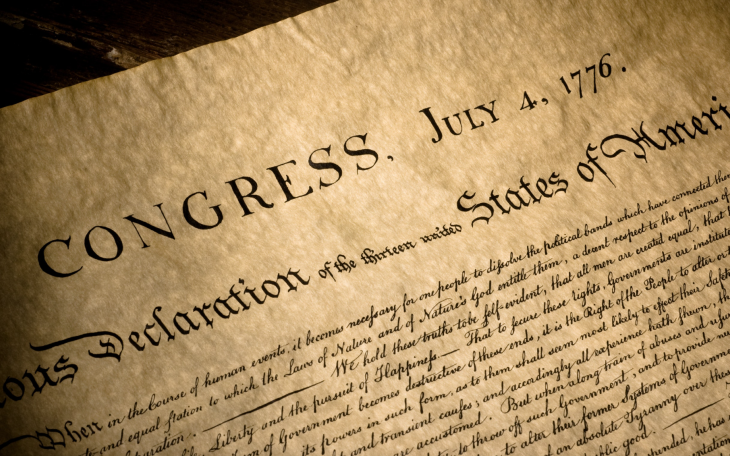 CONGRESS, JULY 4, 1776.
ous Declaration of the thirteen united States of Ameri
When in the Course of human events, it becomes necessary for one people to dissolve the political bands which have connected them
and equal station to which the Laws of Nature and of Nature's God entitle them, a decent respect to the opinions of
aration. — We hold these truths to be self-evident, that all men are created equal, that
Liberty and the pursuit of Happiness.— That to secure these rights, Governments are institute
m of Government becomes destructive of these ends, it is the Right of the People to alter or to
its powers in such form, as to them shall seem most likely to effect their Safet
and transient causes; and accordingly all experience hath shewn, tha
are accustomed. But when a long train of abuses and usur
to throw off such Government, and to provide new
to alter their former Systems of Governme
an absolute Tyranny over these
public good.
suspended, he has